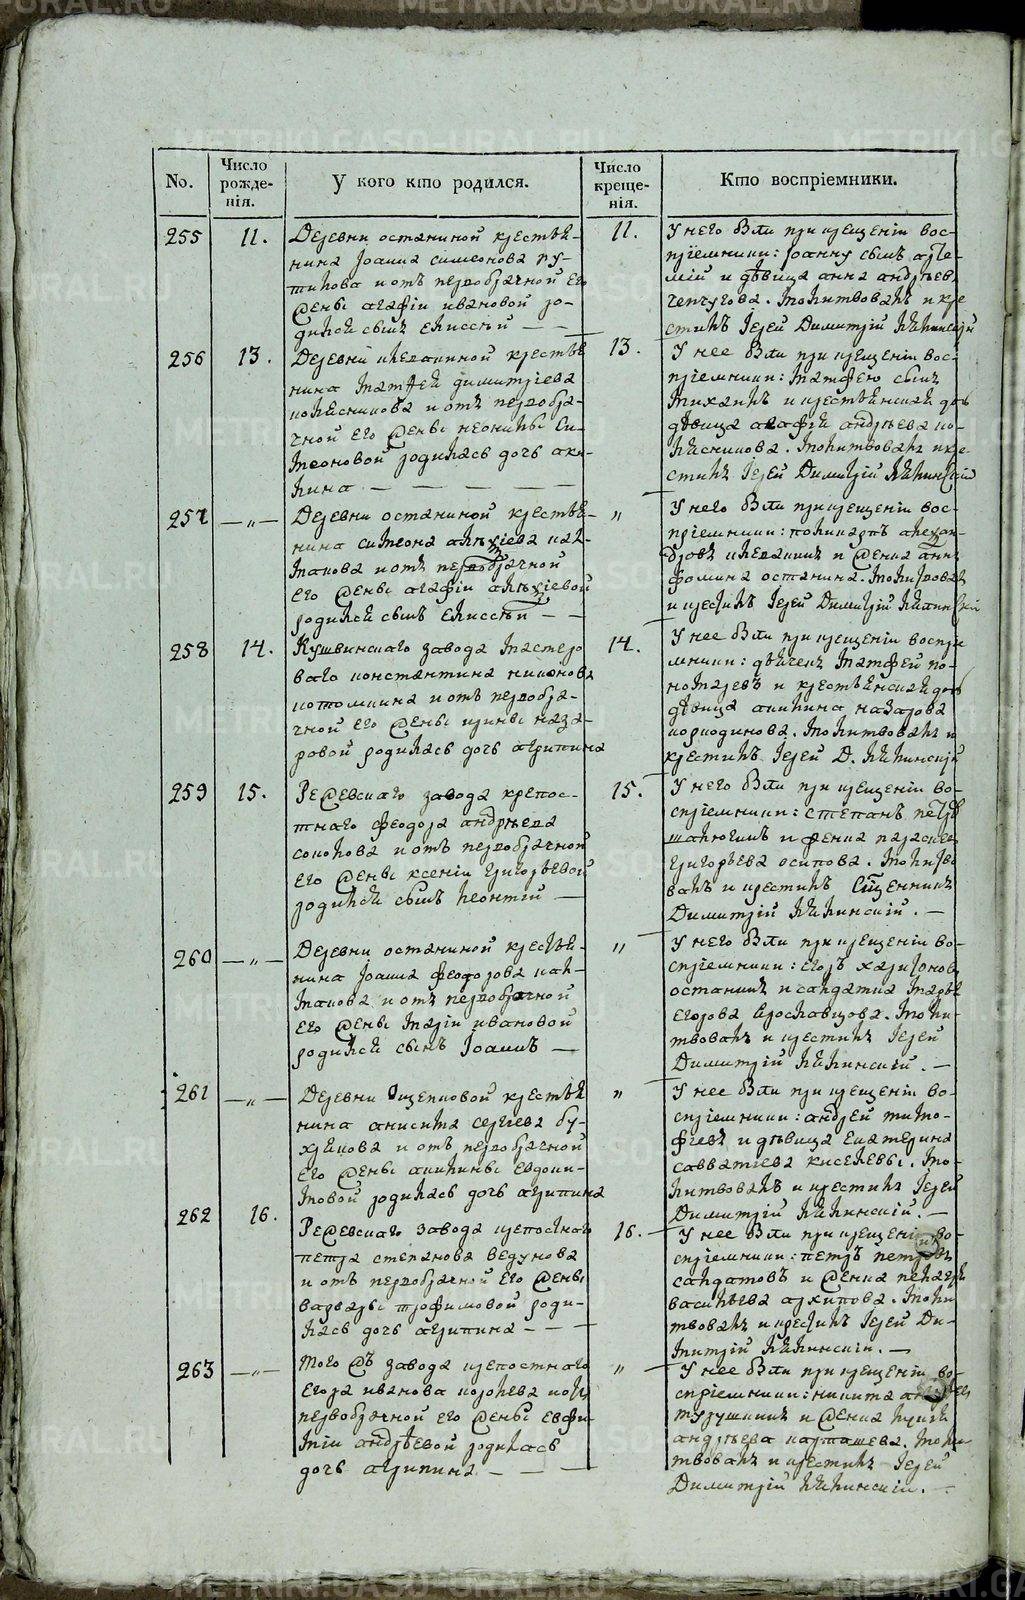 METRIKI.GASO-URAL.RU
No.
Число рожденія.
У кого кто родился.
Число крещенія.
Кто воспріемники.
255
11.
Деревни останиной крестья-
нина Iоанна симеонова ку-
тикова и отъ первобрачной Его
Жены агафiи ивановой ро-
дился сынъ Елиссей — —
11.
У него были при крещенiи вос-
прiемники: Iоанну сынъ арте-
мiй и дѣвица анна андрѣева
. Молитвовалъ и кре
стилъ Iерей Димитрiй
256
13.
Деревни крестья
нина Матфей димитрiева
колясникова и отъ первобра-
чной Его Жены неонилы Си-
меоновой родилась дочь аки-
лина — — — —
13.
У нее были при крещенiи вос-
прiемники: Матфею сынъ
Михаилъ и крестьянская дочь
дѣвица агафiя андрѣева ко-
лясникова. Молитвовалъ и кре-
стилъ Iерей Димитрiй
257
—„—
Деревни останиной крестья-
нина симеона
и отъ первобрачной
Его Жены агафiи
родился сынъ Елиссей — —
„
У него были при крещенiи вос-
прiемники: поликарпъ алексан-
дровъ и Женка анна
фомина останина. Молитвовалъ
и крестилъ Iерей Димитрiй
258
14.
Кушвинскаго завода мастеро
ваго константина никонова
потомкина и отъ первобра-
чной Его Жены ирины наза-
ровой родилась дочь агрипина
14.
У нее были при крещенiи воспрiе
мники: дьячекъ Матфей по-
номаревъ и крестьянская дочь
дѣвица акилина назарова
. Молитвовалъ и
крестилъ Iерей Д.
259
15.
Режевскаго завода крепос-
тнаго феодора андрѣева
соколова и отъ первобрачной
Его Жены ксенiи григорьевой
родился сынъ леонтiй —
15.
У него были при крещенiи во-
спрiемники: степанъ петровъ
и Женка параскева
григорьева осипова. Молитво
валъ и крестилъ Сщенникъ
Димитрiй . —
260
—„—
Деревни останиной крестья-
нина Iоанна феодорова кал-
макова и отъ первобрачной
Его Жены Марiи ивановой
родился сынъ Iоаннъ —
„
У него были при крещенiи во-
спрiемники: егоръ харитоновъ
останинъ и салдатка Марья
егорова Ярославцова. Моли-
твовалъ и крестилъ Iерей
Димитрiй . —
261
—„—
Деревни ощепковой крестья
нина аникита сергеева бу-
хрякова и отъ первобрачной
Его Жены акилины Евдоки-
мовой родилась дочь агрипина
„
У нее были при крещенiи во-
спрiемники: андрей тимо-
феевъ и дѣвица Екатерина
савватиева киселевы. Мо-
литвовалъ и крестилъ Iерей
Димитрiй . —
262
16.
Режевскаго завода крепостнаго
петра степанова ведунова
и отъ первобрачной Его Жены
варвары трофимовой роди-
лась дочь агрипина — — —
16.
У нее были при крещенiи во-
спрiемники: петръ петровъ
салдатовъ и Женка пелагея
васильева архипова. Моли
твовалъ и крестилъ Iерей Ди-
митрiй . —
263
—„—
Того Жъ завода крепостнаго
егора иванова королева и отъ
первобрачной его Жены Евфи-
мiи андрѣевой родилась
дочь агрипина — — —
„
У нее были при крещенiи во-
спрiемники: никита
турушкинъ и Женка
андрѣева карташева. Моли
твовалъ и крестилъ Iерей
Димитрiй . —